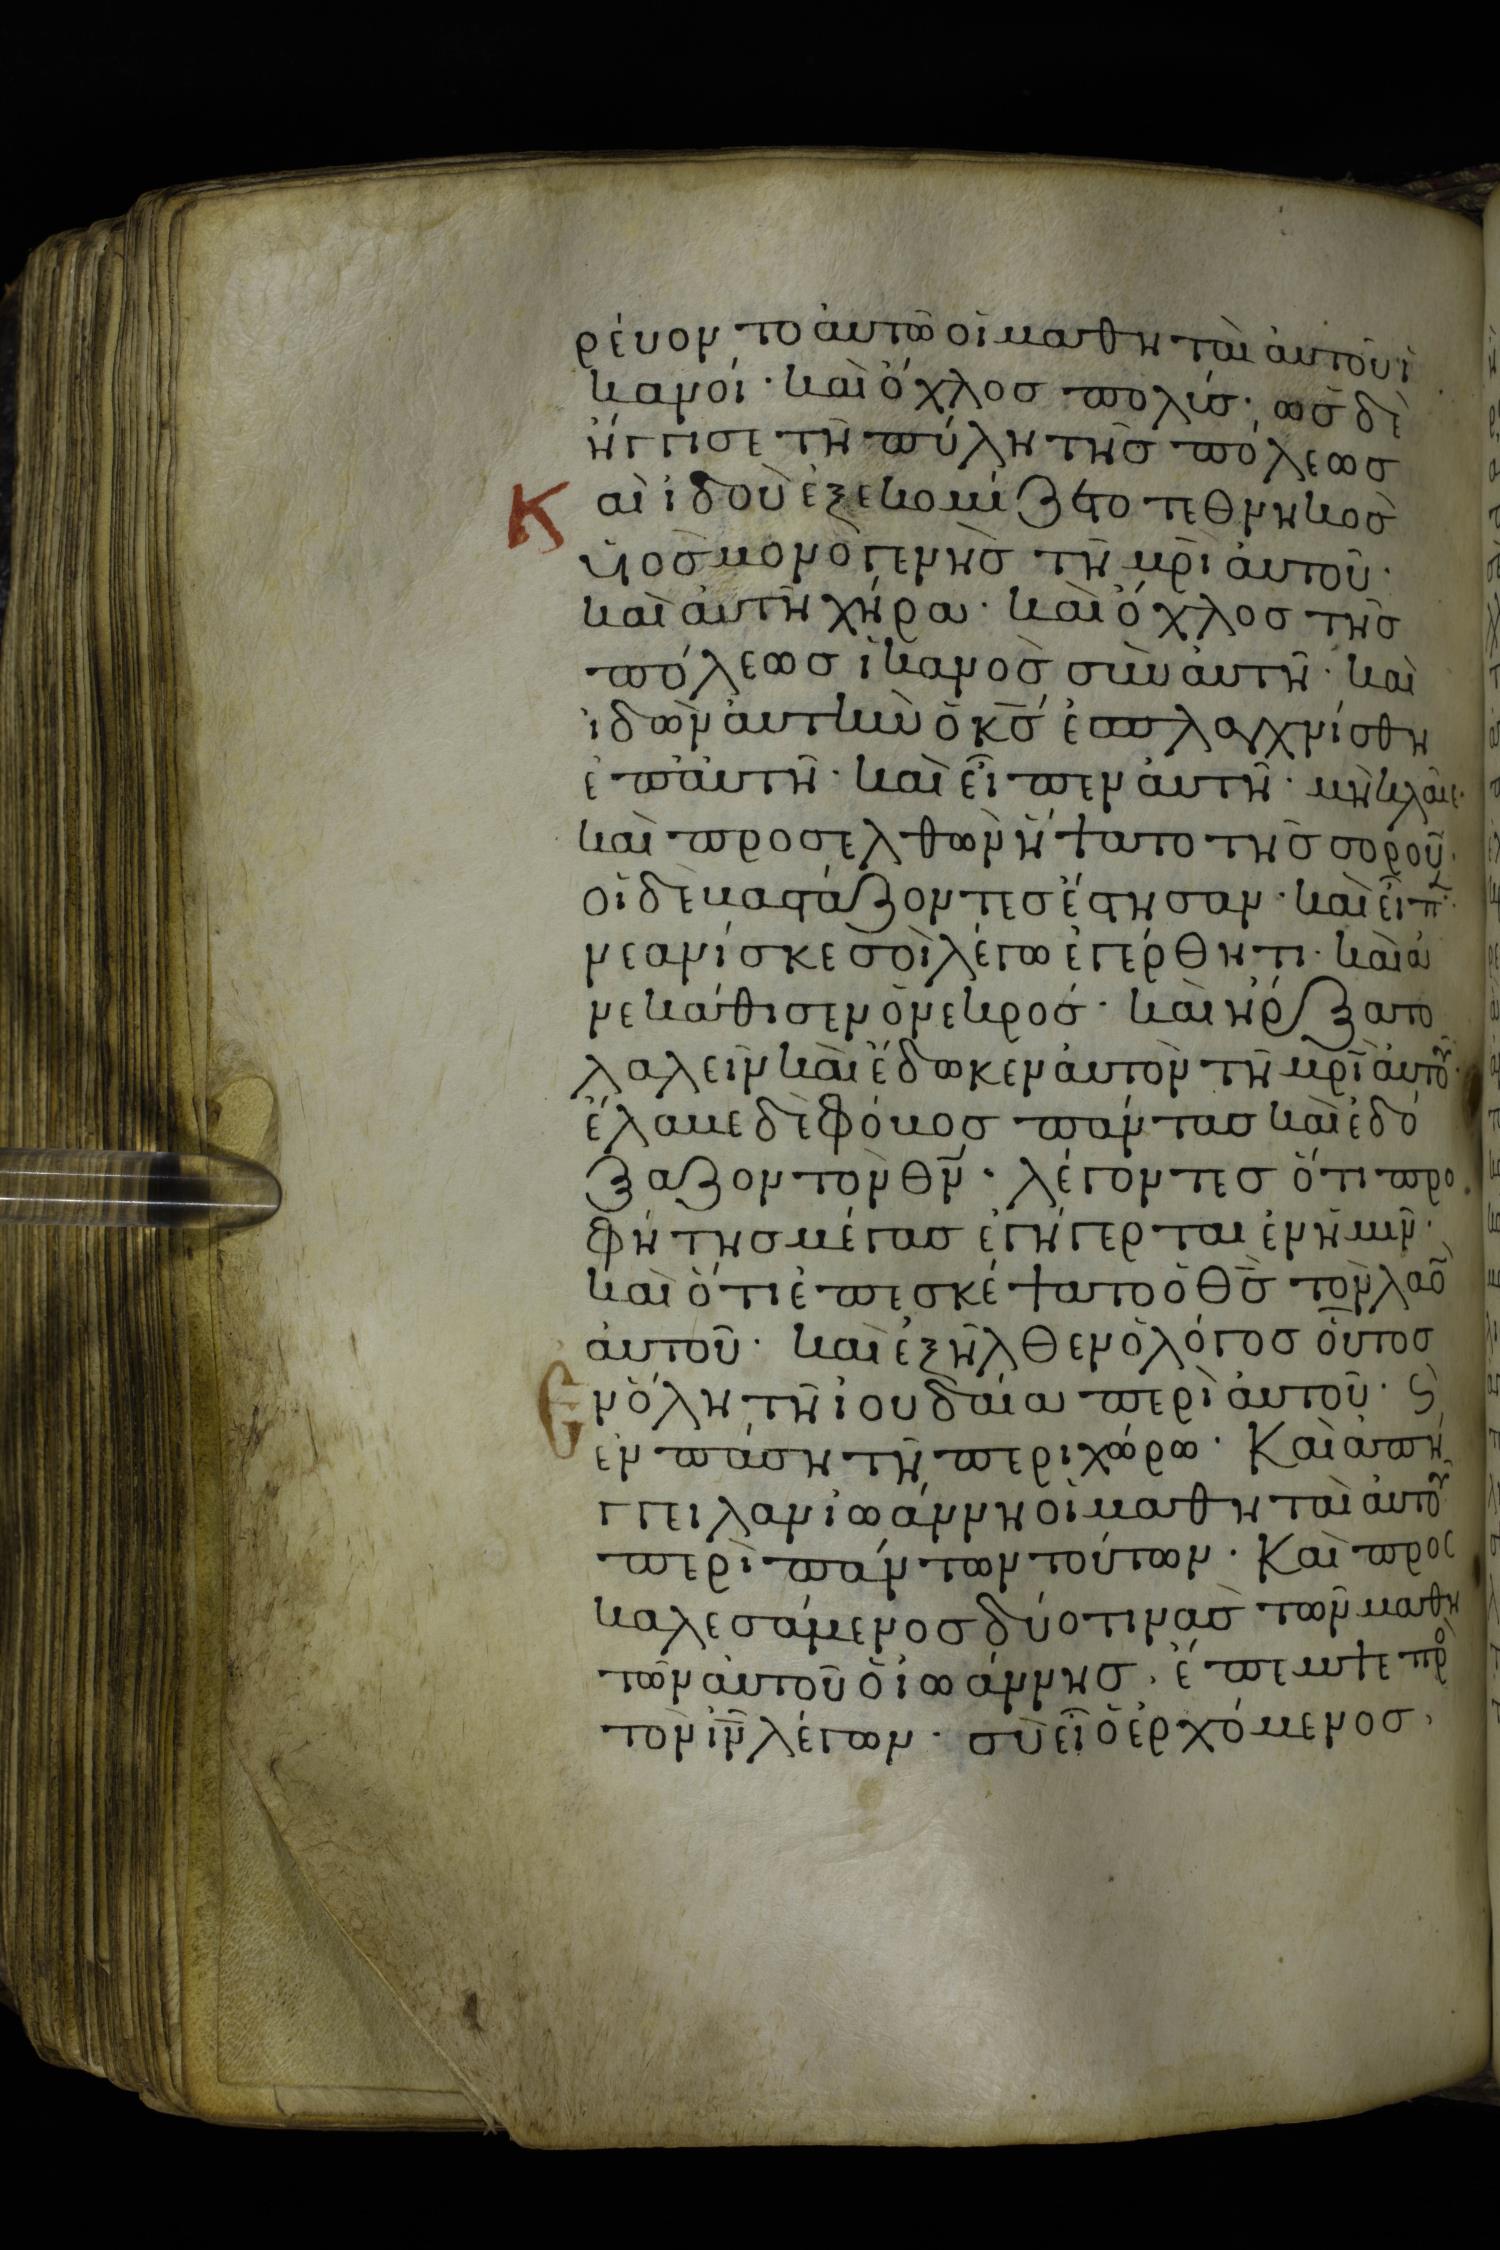 ρέυοντο ἀυτῶ οἱ μαθηταὶ ἀυτοῦ ἱ
κανοί · καὶ ὄχλοσ πολύσ · ὡσ δὲ
ἤγγισε τῆ πύλη τῆσ πόλεωσ
Καὶ ἰδοὺ ἐξεκομίζετο τεθνηκὸσ
ὑιὸσ μονογενὴσ τῆ μρ̅ὶ ἀυτοῦ ·
καὶ ἀυτὴ χήρα · καὶ ὄχλοσ τῆσ
πόλεωσ ἱκανὸσ σὺν ἀυτῆ · καὶ
ἰδὼν ἀυτὴν ὁ κ̅σ ἐσπλαγχνίσθη
ἐπ' ἀυτῆ · καὶ εἶπεν ἀυτῆ · μὴ κλαῖε ·
καὶ προσελθὼν ἥψατο τῆσ σοροῦ ·
οἱ δὲ βαστάζοντεσ ἔστησαν · καὶ εἶπ ·
νεανίσκε σοὶ λέγω ἐγέρθητι · καὶ ἀ
νεκάθισεν ὁ νεκρόσ · καὶ ἤρξατο
λαλεῖν καὶ ἔδωκεν ἀυτὸν τῆ μρ̅ὶ ἀυτοῦ ·
ἔλαβε δὲ φόβοσ πάντασ καὶ ἐδό
ξαζον τὸν θ̅ν · λέγοντεσ ὅτι προ
φήτησ μέγασ ἐγήγερται ἐν ἡμῖν ·
καὶ ὅτι ἐπεσκέψατο ὁ θ̅σ τὸν λαὸ̅
ἀυτοῦ · καὶ ἐξῆλθεν ὁ λόγοσ οὗτοσ
Ἐν ὅλη τῆ ἰουδαία περὶ ἀυτοῦ · ϛ
ἐν πάση τῆ περιχώρω · Καὶ ἀπή
γγειλαν ἰωάννη οἱ μαθηταὶ ἀυτοῦ
περὶ πάντων τούτων · Καὶ προσ
καλεσάμενοσ δύο τινὰσ τῶν μαθη
τῶν ἀυτοῦ ὁ ἰωάννησ · ἔπεμψε πρὸ
τὸν ι̅ν λέγων · σὺ εἶ ὁ ἐρχόμενοσ ·